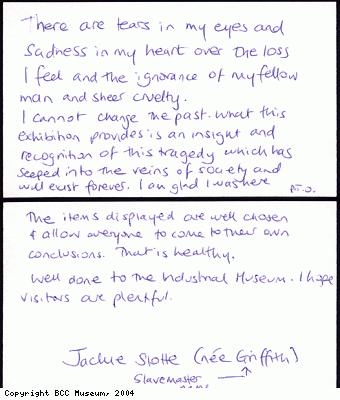 There are tears in my eyes and
sadness in my heart over the loss
I feel and the ignorance of my fellow
man and sheer cruelty.
I cannot change the past. What this
exhibition provides is an insight and
recognition of this tragedy which has
seeped into the veins of society and
will exist forever. I am glad I was here
P.T.O.
The items displayed are well chosen
& allow everyone to come to their own
conclusions. That is healthy.
Well done to the Industrial Museum. I hope
visitors are plentiful.
Jackie Slotte (née Griffith)
Slavemaster
Copyright BCC Museum, 2004